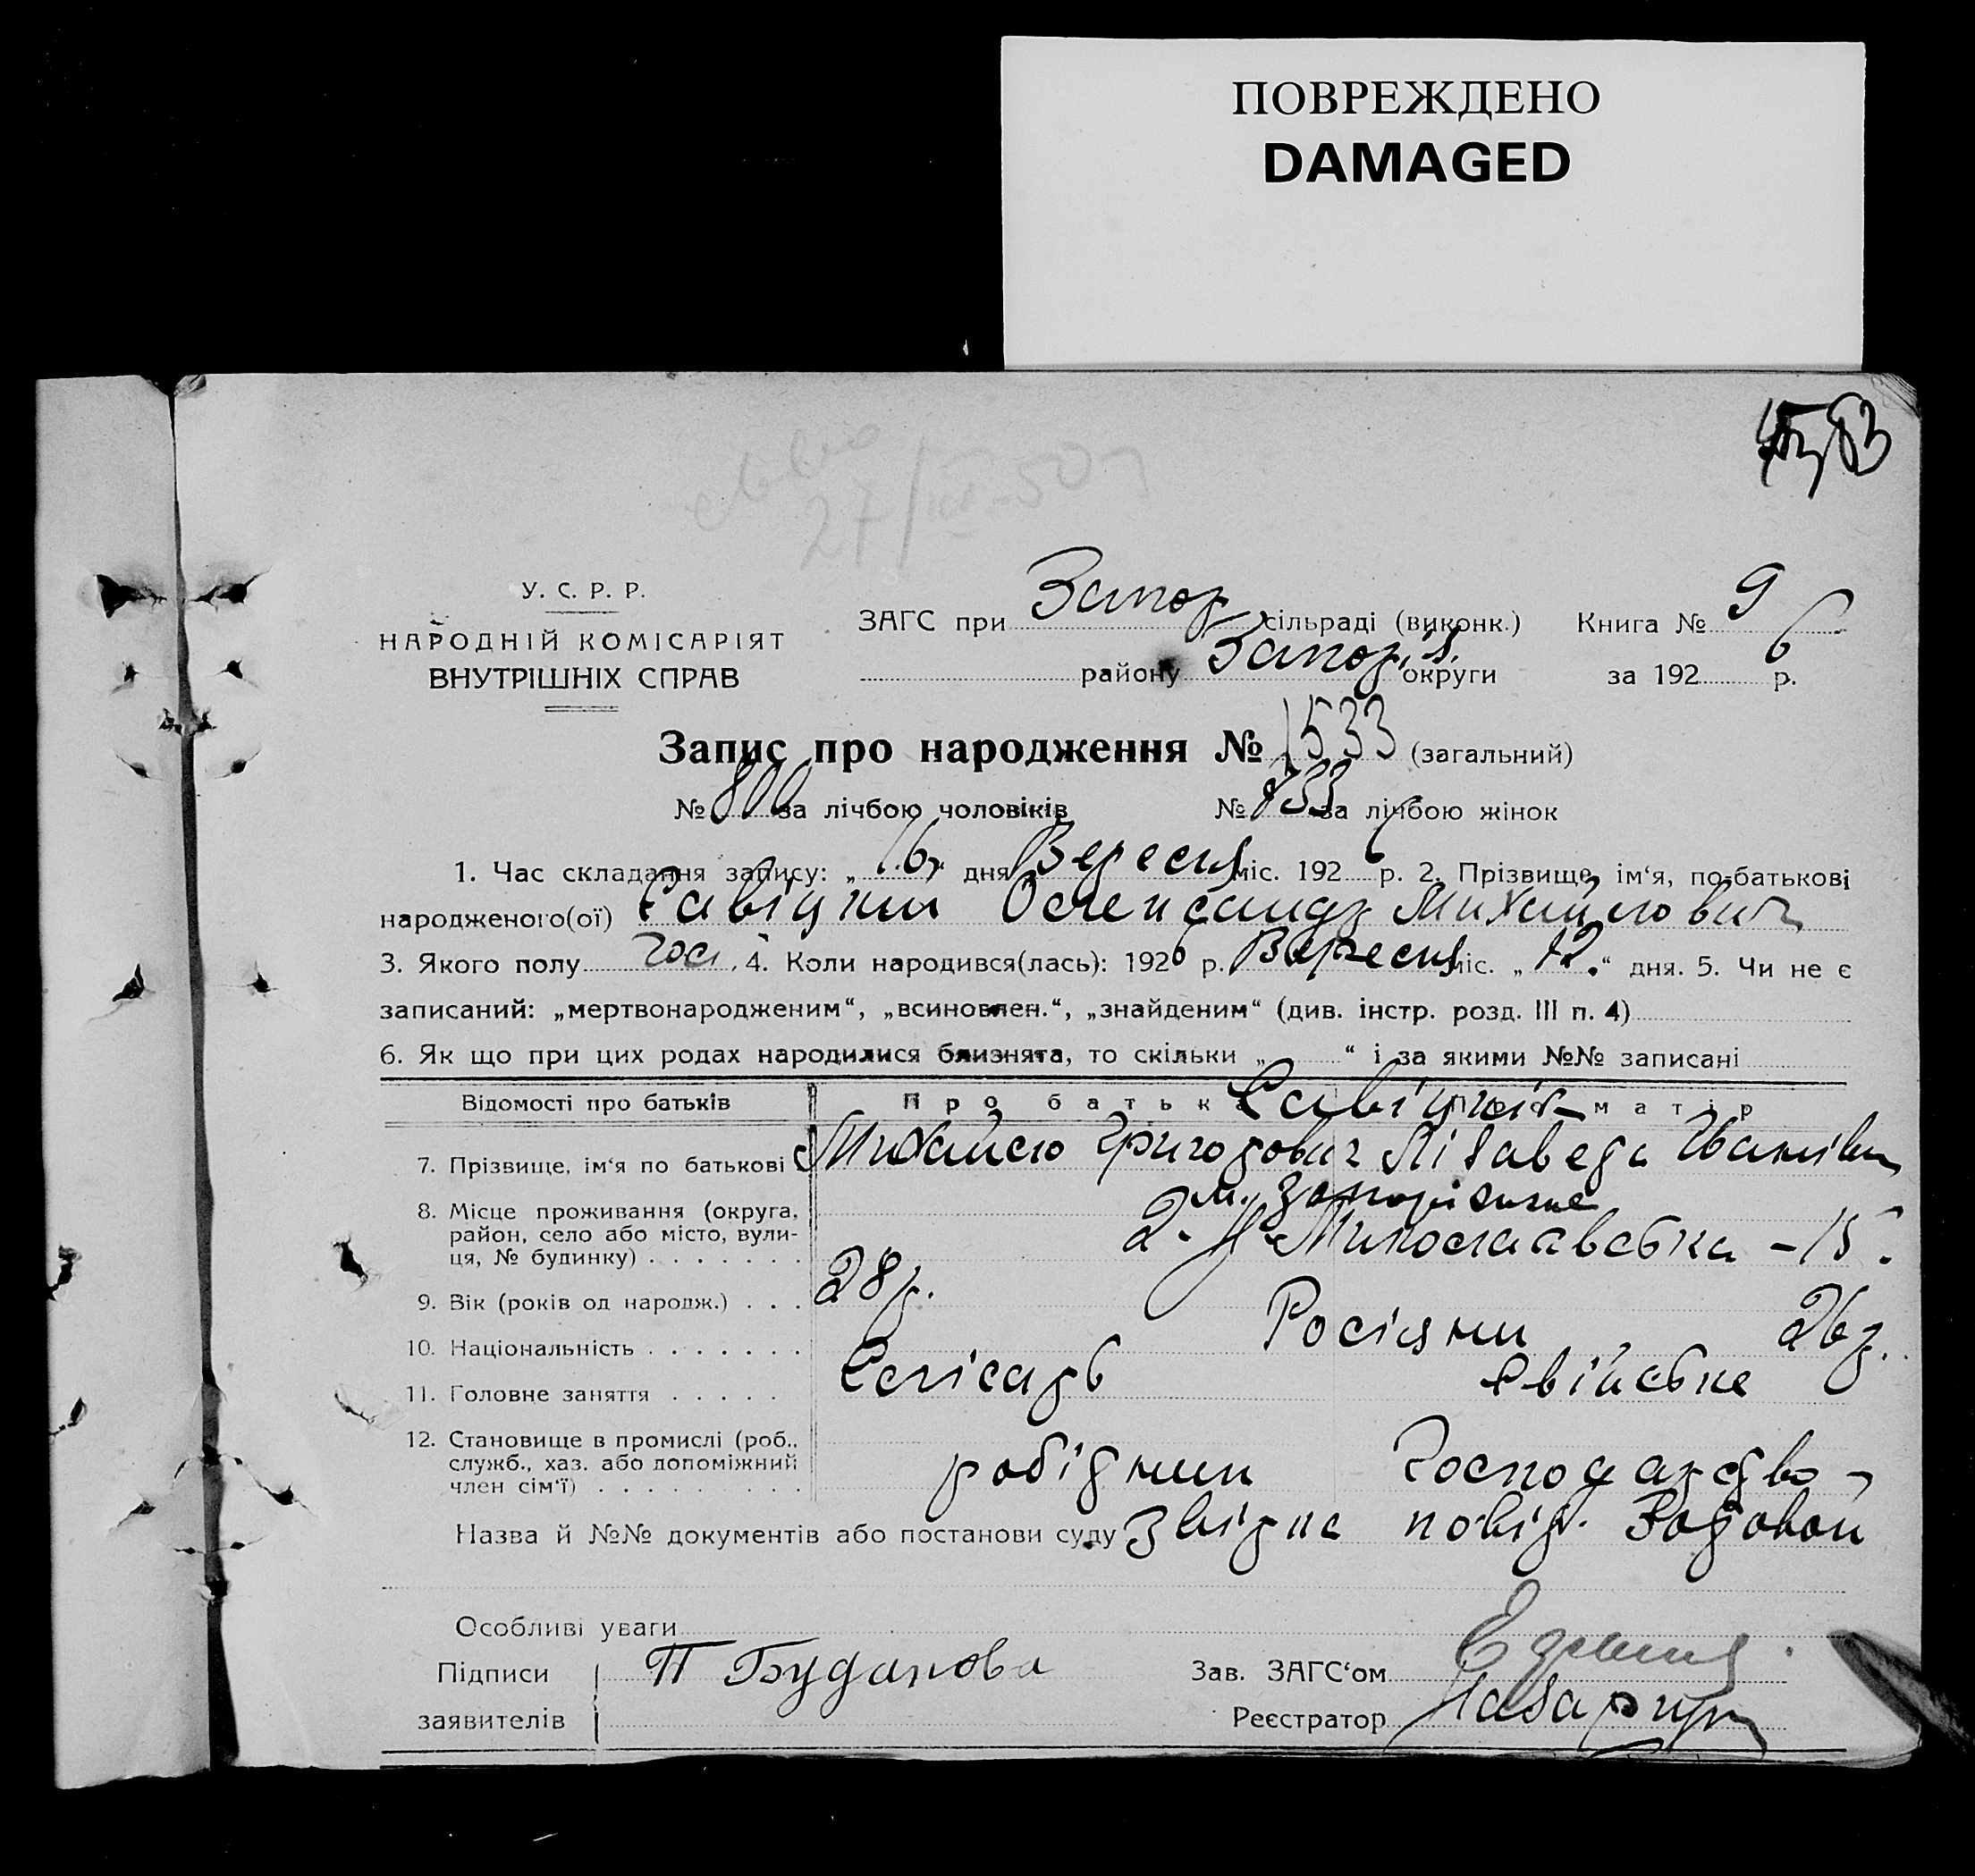 ПОВРЕЖДЕНО
DAMAGED
У. С. Р. Р.
НАРОДНІЙ КОМІСАРІЯТ
ВНУТРІШНІХ СПРАВ
ЗАГС при Запор сільраді (виконк.) Книга № 9
району Запоріз. округи за 1926 р.
Запис про народження № 1533 (загальний)
№ 800 за лічбою чоловіків № 733 за лічбою жінок
1. Час складання запису: „16“ дня Вересня міс. 1926 р. 2. Прізвище, ім‘я, по-батькові
народженого(ої) Савіцкий Олександр Михайлович
3. Якого полу чол. 4. Коли народився(лась): 1926 р. Вересня міс. „12.“ дня. 5. Чи не є
записаний: „мертвонародженим“, „всиновлен.“, „знайденим“ (див. інстр. розд. III п. 4)
6. Як що при цих родах народилися близнята, то скільки „ “ і за якими №№ записані
Відомості про батьків Про батька Про матір
Савіцкія
7. Прізвище, ім‘я по батькові Михайло Григорович Лізавета Іванівна
м. Запоріжжє
8. Місце проживання (округа, район, село або місто, вулиця, № будинку) . . . . . . . 2. Миколаєвська – 15.
9. Вік (років од народж.) . . . 28 р. 26 р.
10. Національність . . . . . . . Росіяни
11. Головне заняття . . . . . Слісарь свійське
12. Становище в промислі (роб., служб., хаз. або допоміжний член сім‘ї) . . . . . . . . . робідник господарство
Назва й №№ документів або постанови суду звідка повід.
Особливі уваги
Підписи П Буданова Зав. ЗАГС‘ом
заявителів Реєстратор